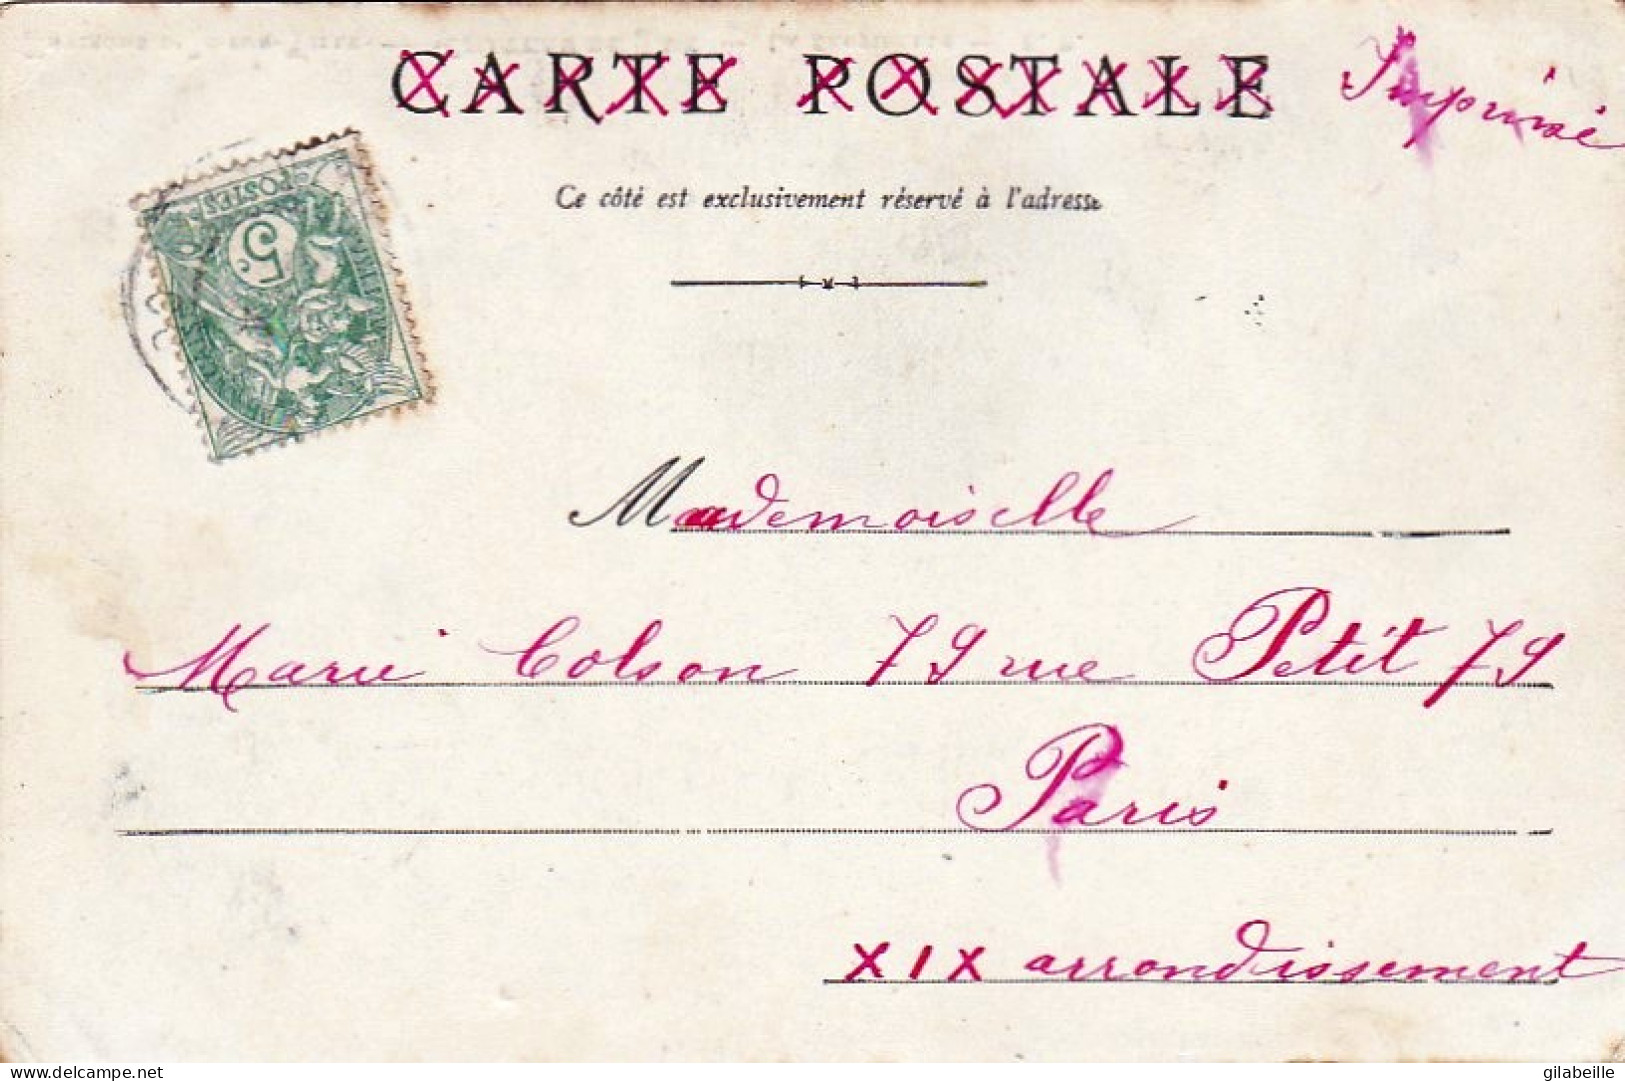 CARTE POSTALE
Imprimé
Ce côté est exclusivement réservé à l'adresse
POSTES
5c
Mademoiselle
Marie Colson 79 rue Petit 79
Paris
XIX arrondissement
delcampe.net
gilabeille